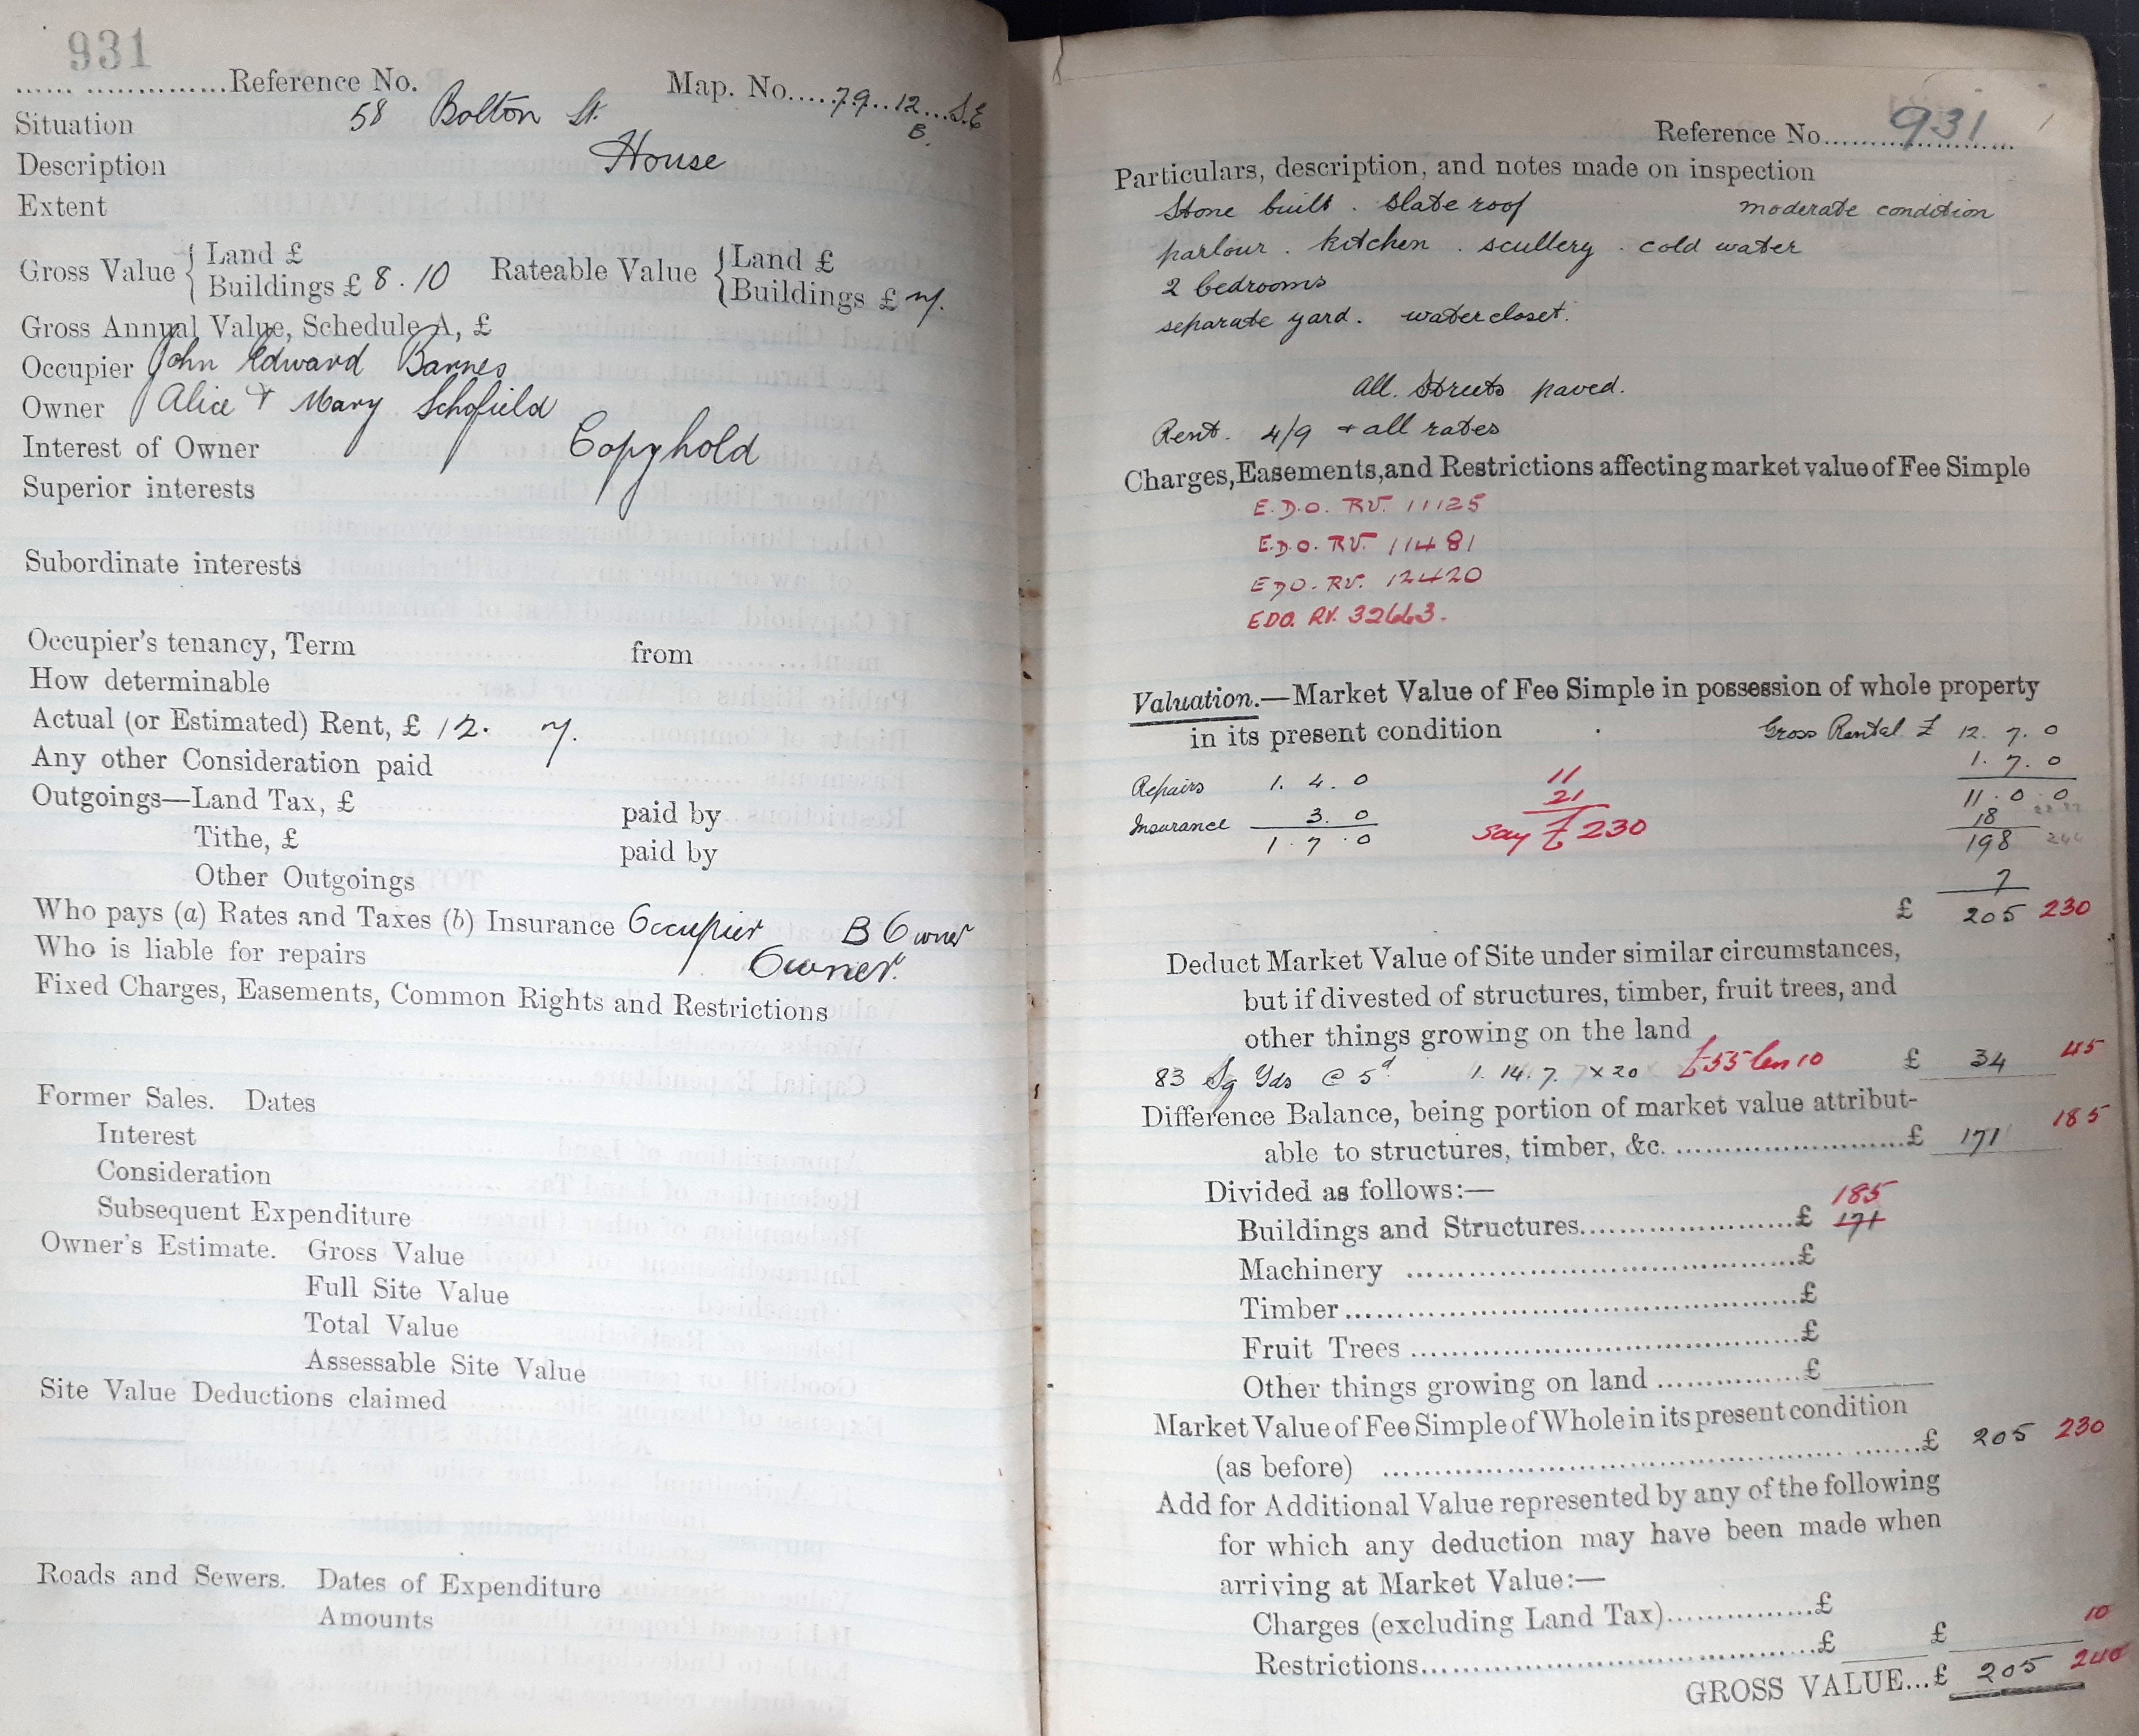 931
.....................Reference No. Map. No.....79..12...S.E
B.
Situation 58 Bolton St.
Description House
Extent
Gross Value { Land £ Rateable Value { Land £
Buildings £ 8 . 10 Buildings £ 7.
Gross Annual Value, Schedule A, £
Occupier John Edward Barnes
Owner Alice & Mary Schofield
Interest of Owner Copyhold
Superior interests
Subordinate interests
Occupier's tenancy, Term from
How determinable
Actual (or Estimated) Rent, £ 12. 7.
Any other Consideration paid
Outgoings—Land Tax, £ paid by
Tithe, £ paid by
Other Outgoings
Who pays (a) Rates and Taxes (b) Insurance Occupier B Owner
Who is liable for repairs Owner.
Fixed Charges, Easements, Common Rights and Restrictions
Former Sales. Dates
Interest
Consideration
Subsequent Expenditure
Owner's Estimate. Gross Value
Full Site Value
Total Value
Assessable Site Value
Site Value Deductions claimed
Roads and Sewers. Dates of Expenditure
Amounts
Reference No. 931
Particulars, description, and notes made on inspection
Stone built . Slate roof moderate condition
parlour . kitchen . scullery . cold water
2 bedrooms
separate yard. watercloset.
All. Streets paved.
Rent. 4/9 + all rates
Charges, Easements, and Restrictions affecting market value of Fee Simple
E.D.O. RV. 11125
E.D.O. RV. 11481
EDO. RV. 12420
EDO. RV. 32663.
Valuation.—Market Value of Fee Simple in possession of whole property
in its present condition Gross Rental £ 12. 7. 0
1. 7. 0
Repairs 1. 4. 0 11 11. 0. 0
21 18
Insurance 3. 0 say £230 198
1. 7. 0
7
£ 205 230
Deduct Market Value of Site under similar circumstances,
but if divested of structures, timber, fruit trees, and
other things growing on the land
83 Sq Yds @ 5d 1. 14. 7. x 20 £55 less 10 £ 34 45
Difference Balance, being portion of market value attribut-
able to structures, timber, &c. ........................£ 171 185
Divided as follows:—
185
Buildings and Structures......................£ 171
Machinery ........................................£
Timber..............................................£
Fruit Trees ........................................£
Other things growing on land ...............£
Market Value of Fee Simple of Whole in its present condition
(as before) .....................................................£ 205 230
Add for Additional Value represented by any of the following
for which any deduction may have been made when
arriving at Market Value:—
Charges (excluding Land Tax)...............£
Restrictions.......................................£ £ 10
GROSS VALUE...£ 205 240